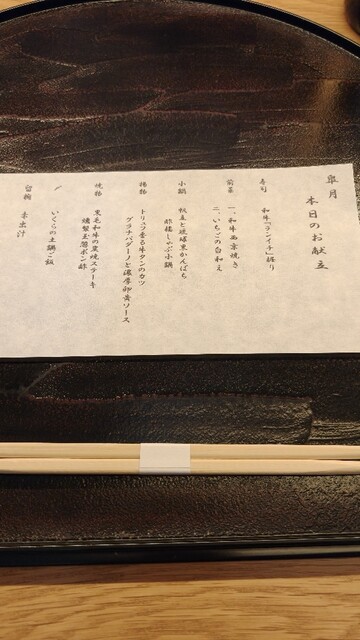 皐月
本日のお献立
寿司 和牛「ランイチ」握り
前菜 一、和牛西京焼き
二、いちごの白和え
小鍋 帆立と琉球黒かんぱち
酢橘しゃぶ小鍋
揚物 トリュフ香る牛タンのカツ
グラナパダーノと濃厚卵黄ソース
焼物 黒毛和牛の藁焼ステーキ
燻製玉葱ポン酢
〆 いくらの土鍋ご飯
留椀 赤出汁